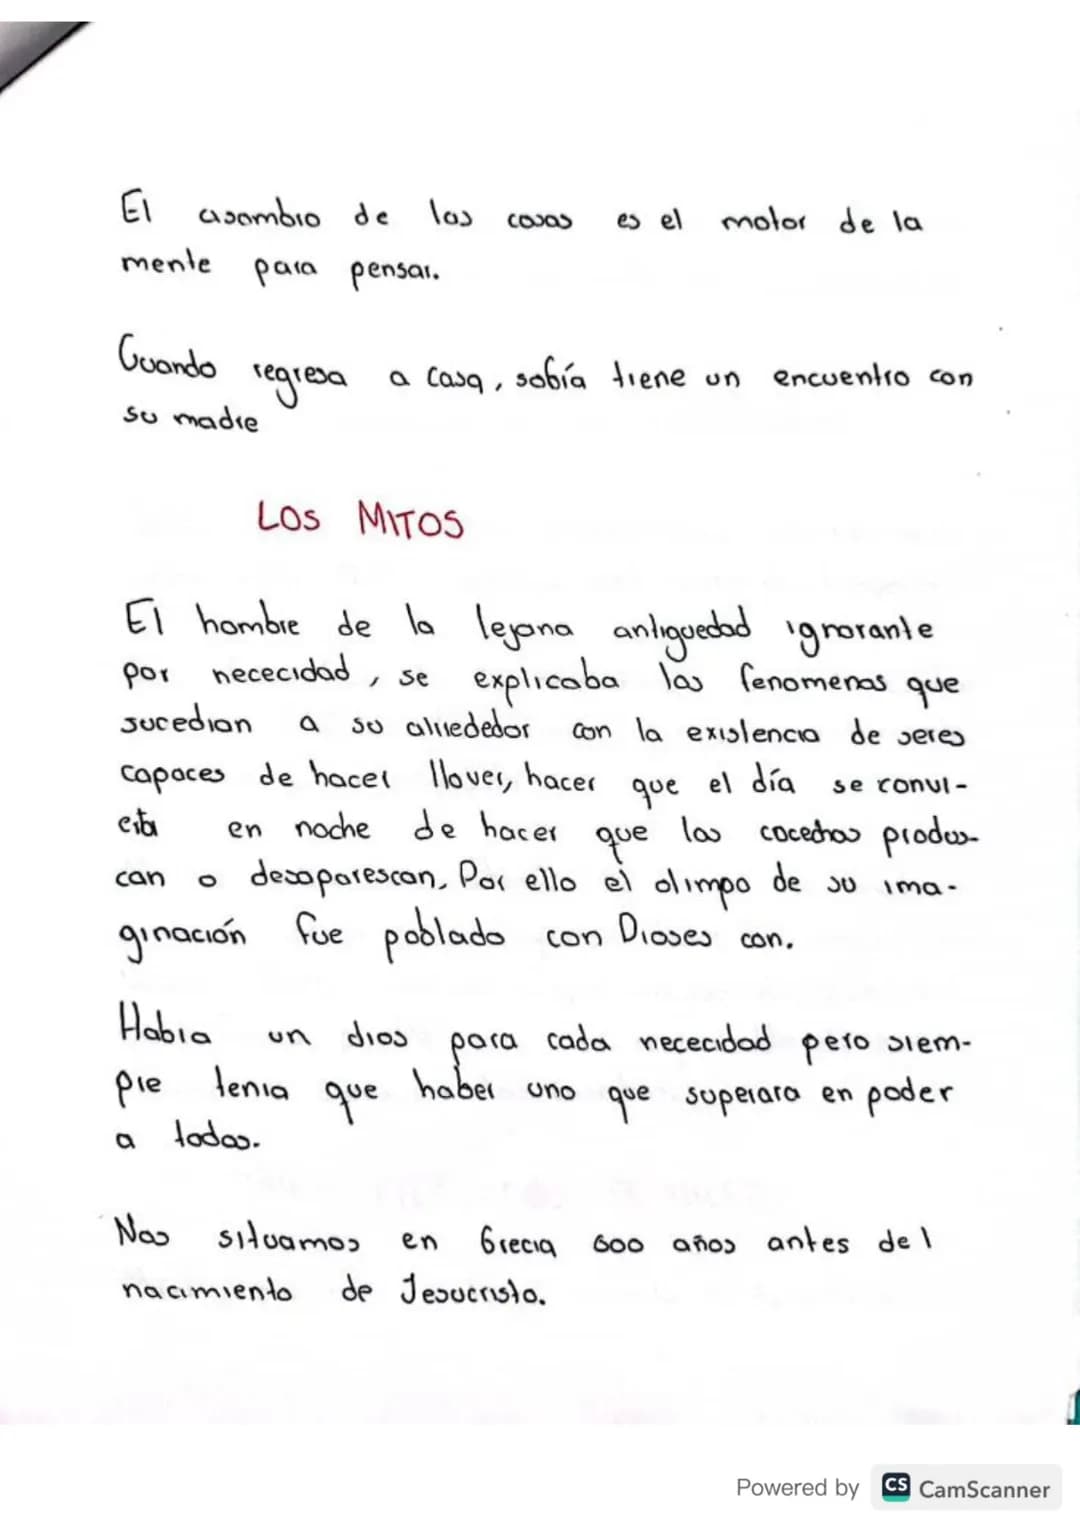 El asombro de las cosas es el motor de la
mente para pensar.
Cuando regresa a casa, sobía tiene un encuentro con
su madre
LOS MITOS
El hombre de la lejana antiguedad ignorante
por nececidad, se explicaba las fenomenos que
sucedian a su alrededor con la existencia de seres
capaces de hacer llover, hacer que el día se convi-
erta en noche de hacer que las cocechas produs-
can o desaparescan. Por ello el olimpo de su ima-
ginación fue poblado con Dioses con.
Habia un dios para cada nececidad pero siem-
pre tenia que haber uno que superara en poder
a todos.
Nos situamos en Grecia 600 años antes del
nacimiento de Jesucristo.
Powered by CS CamScanner